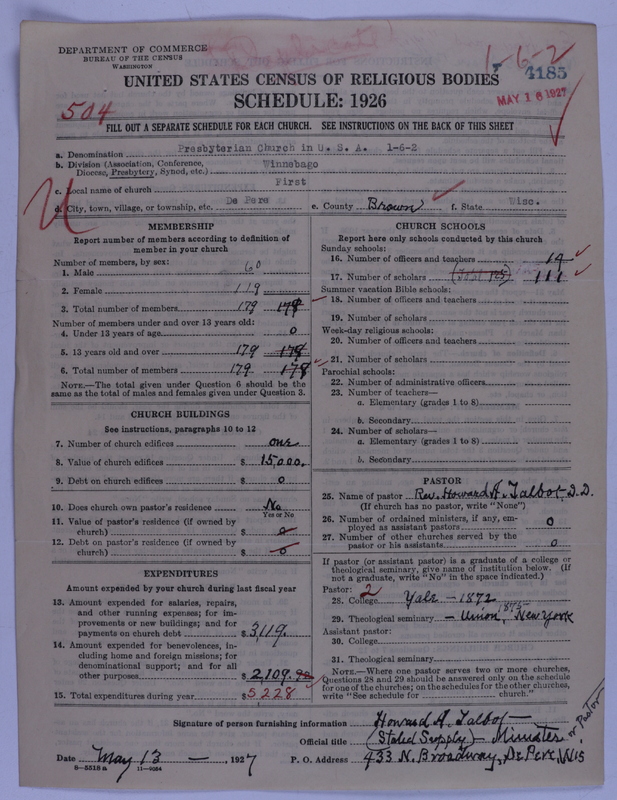 DEPARTMENT OF COMMERCE
BUREAU OF THE CENSUS
WASHINGTON
1-6-2
4185
UNITED STATES CENSUS OF RELIGIOUS BODIES
MAY 16 1927
SCHEDULE: 1926
504
FILL OUT A SEPARATE SCHEDULE FOR EACH CHURCH. SEE INSTRUCTIONS ON THE BACK OF THIS SHEET
a. Denomination Presbyterian Church in U. S. A. 1-6-2
b. Division (Association, Conference, Diocese, Presbytery, Synod, etc.) Winnebago
c. Local name of church First
d. City, town, village, or township, etc. De Pere e. County Brown f. State Wisc.
MEMBERSHIP
Report number of members according to definition of member in your church
Number of members, by sex:
1. Male 60
2. Female 119
3. Total number of members 179 178
Number of members under and over 13 years old:
4. Under 13 years of age 0
5. 13 years old and over 179 178
6. Total number of members 179 178
NOTE.—The total given under Question 6 should be the same as the total of males and females given under Question 3.
CHURCH BUILDINGS
See instructions, paragraphs 10 to 12
7. Number of church edifices one
8. Value of church edifices $ 15,000.
9. Debt on church edifices $ 0
10. Does church own pastor's residence No
Yes or No
11. Value of pastor's residence (if owned by church) $ 0
12. Debt on pastor's residence (if owned by church) $ 0
EXPENDITURES
Amount expended by your church during last fiscal year
13. Amount expended for salaries, repairs, and other running expenses; for improvements or new buildings; and for payments on church debt $ 3119.
14. Amount expended for benevolences, including home and foreign missions; for denominational support; and for all other purposes $ 2,109.98
15. Total expenditures during year $ 5,228
CHURCH SCHOOLS
Report here only schools conducted by this church
Sunday schools:
16. Number of officers and teachers 14
17. Number of scholars (Total 125) 111
Summer vacation Bible schools:
18. Number of officers and teachers
19. Number of scholars
Week-day religious schools:
20. Number of officers and teachers
21. Number of scholars
Parochial schools:
22. Number of administrative officers
23. Number of teachers—
a. Elementary (grades 1 to 8)
b. Secondary
24. Number of scholars—
a. Elementary (grades 1 to 8)
b. Secondary
PASTOR
25. Name of pastor Rev. Howard A. Talbot, D.D.
(If church has no pastor, write "None")
26. Number of ordained ministers, if any, employed as assistant pastors 0
27. Number of other churches served by the pastor or his assistants 0
If pastor (or assistant pastor) is a graduate of a college or theological seminary, give name of institution below. (If not a graduate, write "No" in the space indicated.)
Pastor: 2
28. College Yale - 1872
29. Theological seminary - Union, 1875 New York
Assistant pastor:
30. College
31. Theological seminary
NOTE.—Where one pastor serves two or more churches, Questions 28 and 29 should be answered only on the schedule for one of the churches; on the schedules for the other churches, write "See schedule for church."
Signature of person furnishing information Howard A. Talbot
Official title (Stated Supply) - Minister or Pastor
Date May 13 , 1927 P. O. Address 433 N. Broadway, De Pere, Wis
8-5518 a 11-9084